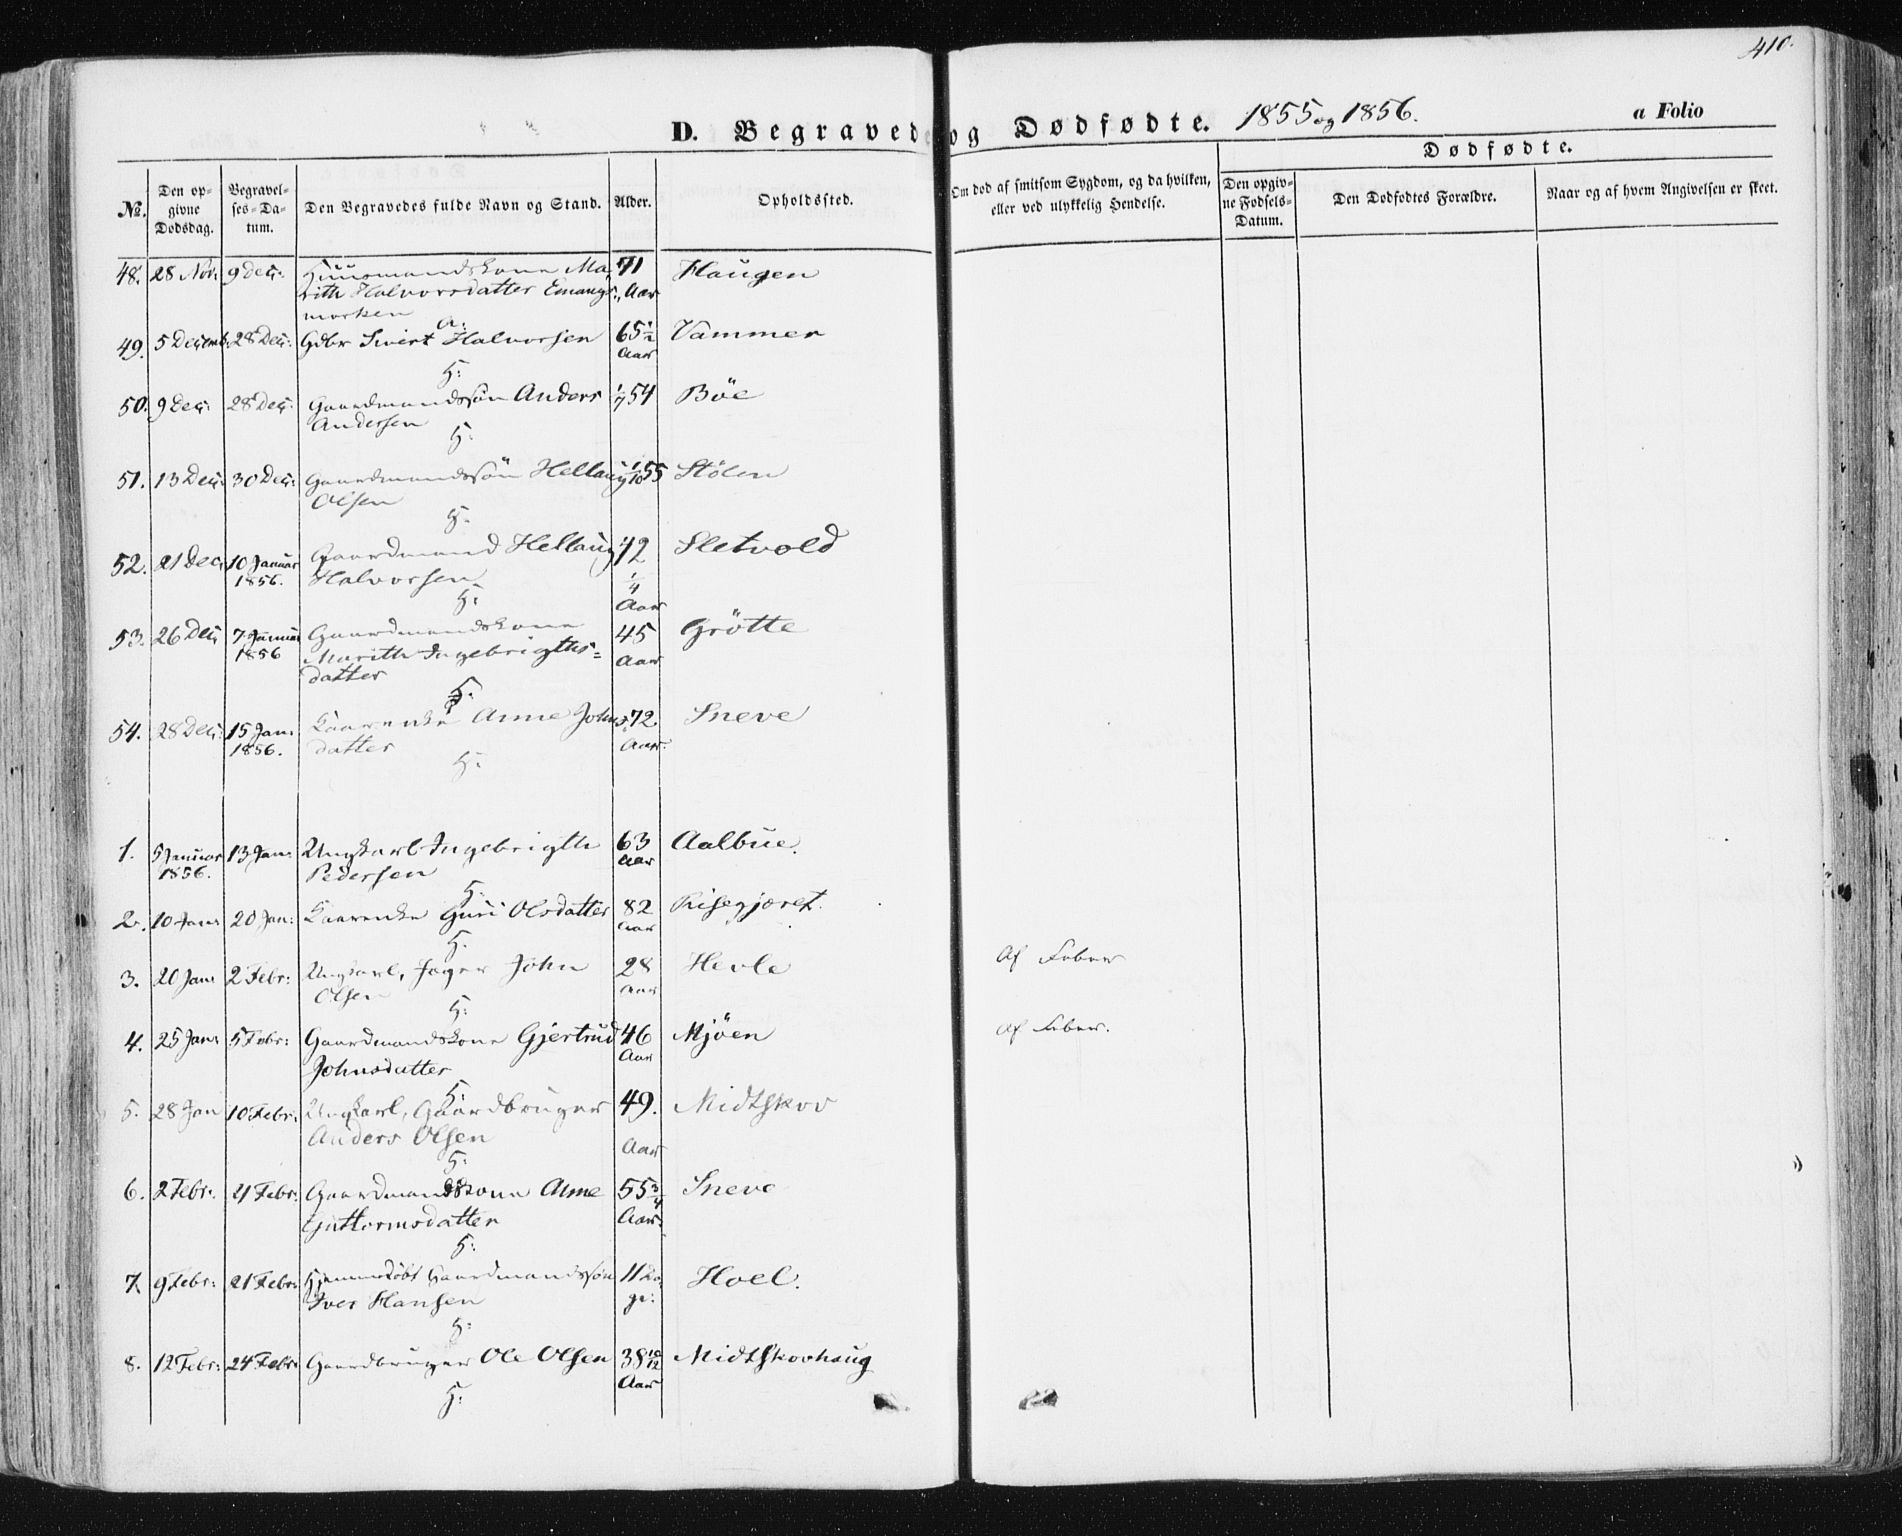 410.
D. Begravede og Dødfødte. 1855 og 1856. a Folio
Dødfødte.
No. Den opgivne Dødsdag. Begravelses-Datum. Den Begravedes fulde Navn og Stand. Alder. Opholdssted. Om død af smitsom Sygdom, og da hvilken, eller ved ulykkelig Hendelse. Den opgivne Fødsels-Datum. Den Dødfødtes Forældre. Naar og af hvem Angivelsen er skeet.
48. 28 Nov: 9 Dec: Huusmandskone Ma- 71 Haugen
rith Halvorsdatter Aar
morken
49. 5 Decemb: 28 Dec: Gdbr Sivert Halvorsen 65 1/2 Vammer
Aar
H:
50. 9 Dec: 28 Dec: Gaardmandssön Anders 1/7 54 Böe
Andersen
H:
51. 13 Dec: 30 Dec: Gaardmandssön Hellaug 1/10 55 Stölen
Olsen
H:
52. 21 Dec: 10 Januar Gaardmand Hellaug 42 Sletvold
1856. Halvorsen 1/4
H: Aar
53. 26 Dec: 7 Januar Gaardmandskone 45 Grötte
1856 Marith Ingebrigths= Aar
datter
H:
54. 28 Dec: 15 Jan: Kaarenke Anne Johns 72 Sneve
1856. datter Aar.
H:
1. 5 Januar 13 Jan: Ungkarl Ingebrigth 63 Aalbue.
1856. Pedersen Aar
H:
2. 10 Jan: 20 Jan: Kaarenke Guri Olsdatter 82 Risegjæret.
Aar
H:
3. 20 Jan: 2 Febr: Ungkarl, Jæger John 28 Hevle Af Feber
Olsen Aar
H:
4. 25 Jan: 5 Febr: Gaardmandskone Gjertrud 46 Mjöen Af Feber.
Johnsdatter Aar
H:
5. 28 Jan 10 Febr: Ungkarl, Gaardbruger 49. Midtskov
Anders Olsen Aar
H:
6. 2 Febr: 21 Febr: Gaardmandskone Anne 55 3/4 Sneve
Guttormsdatter Aar.
H:
7. 9 Febr: 21 Febr: Hjemmedöbt Gaardmandssön 11 Da- Hoel.
Iver Hansen ge:
H:
8. 12 Febr: 24 Febr: Gaardbruger Ole Olsen 38 10/12 Midtskovhaug
Aar
H: